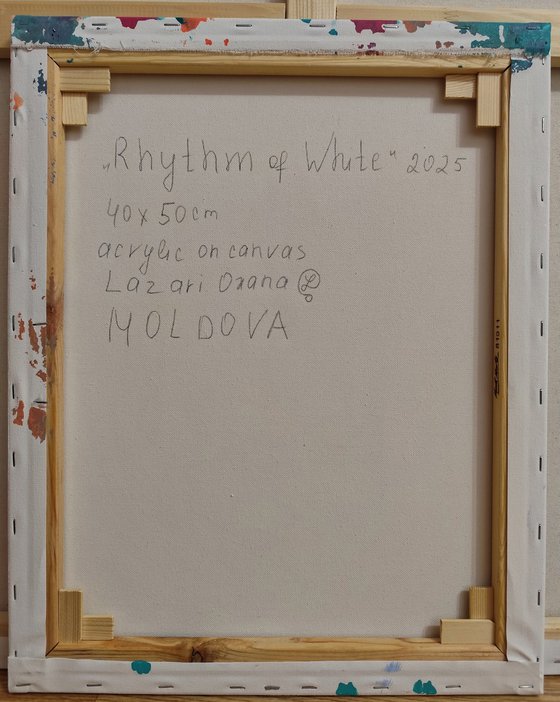 „Rhythm of White" 2025
40 x 50 cm
acrylic on canvas
Lazari Oxana
MOLDOVA